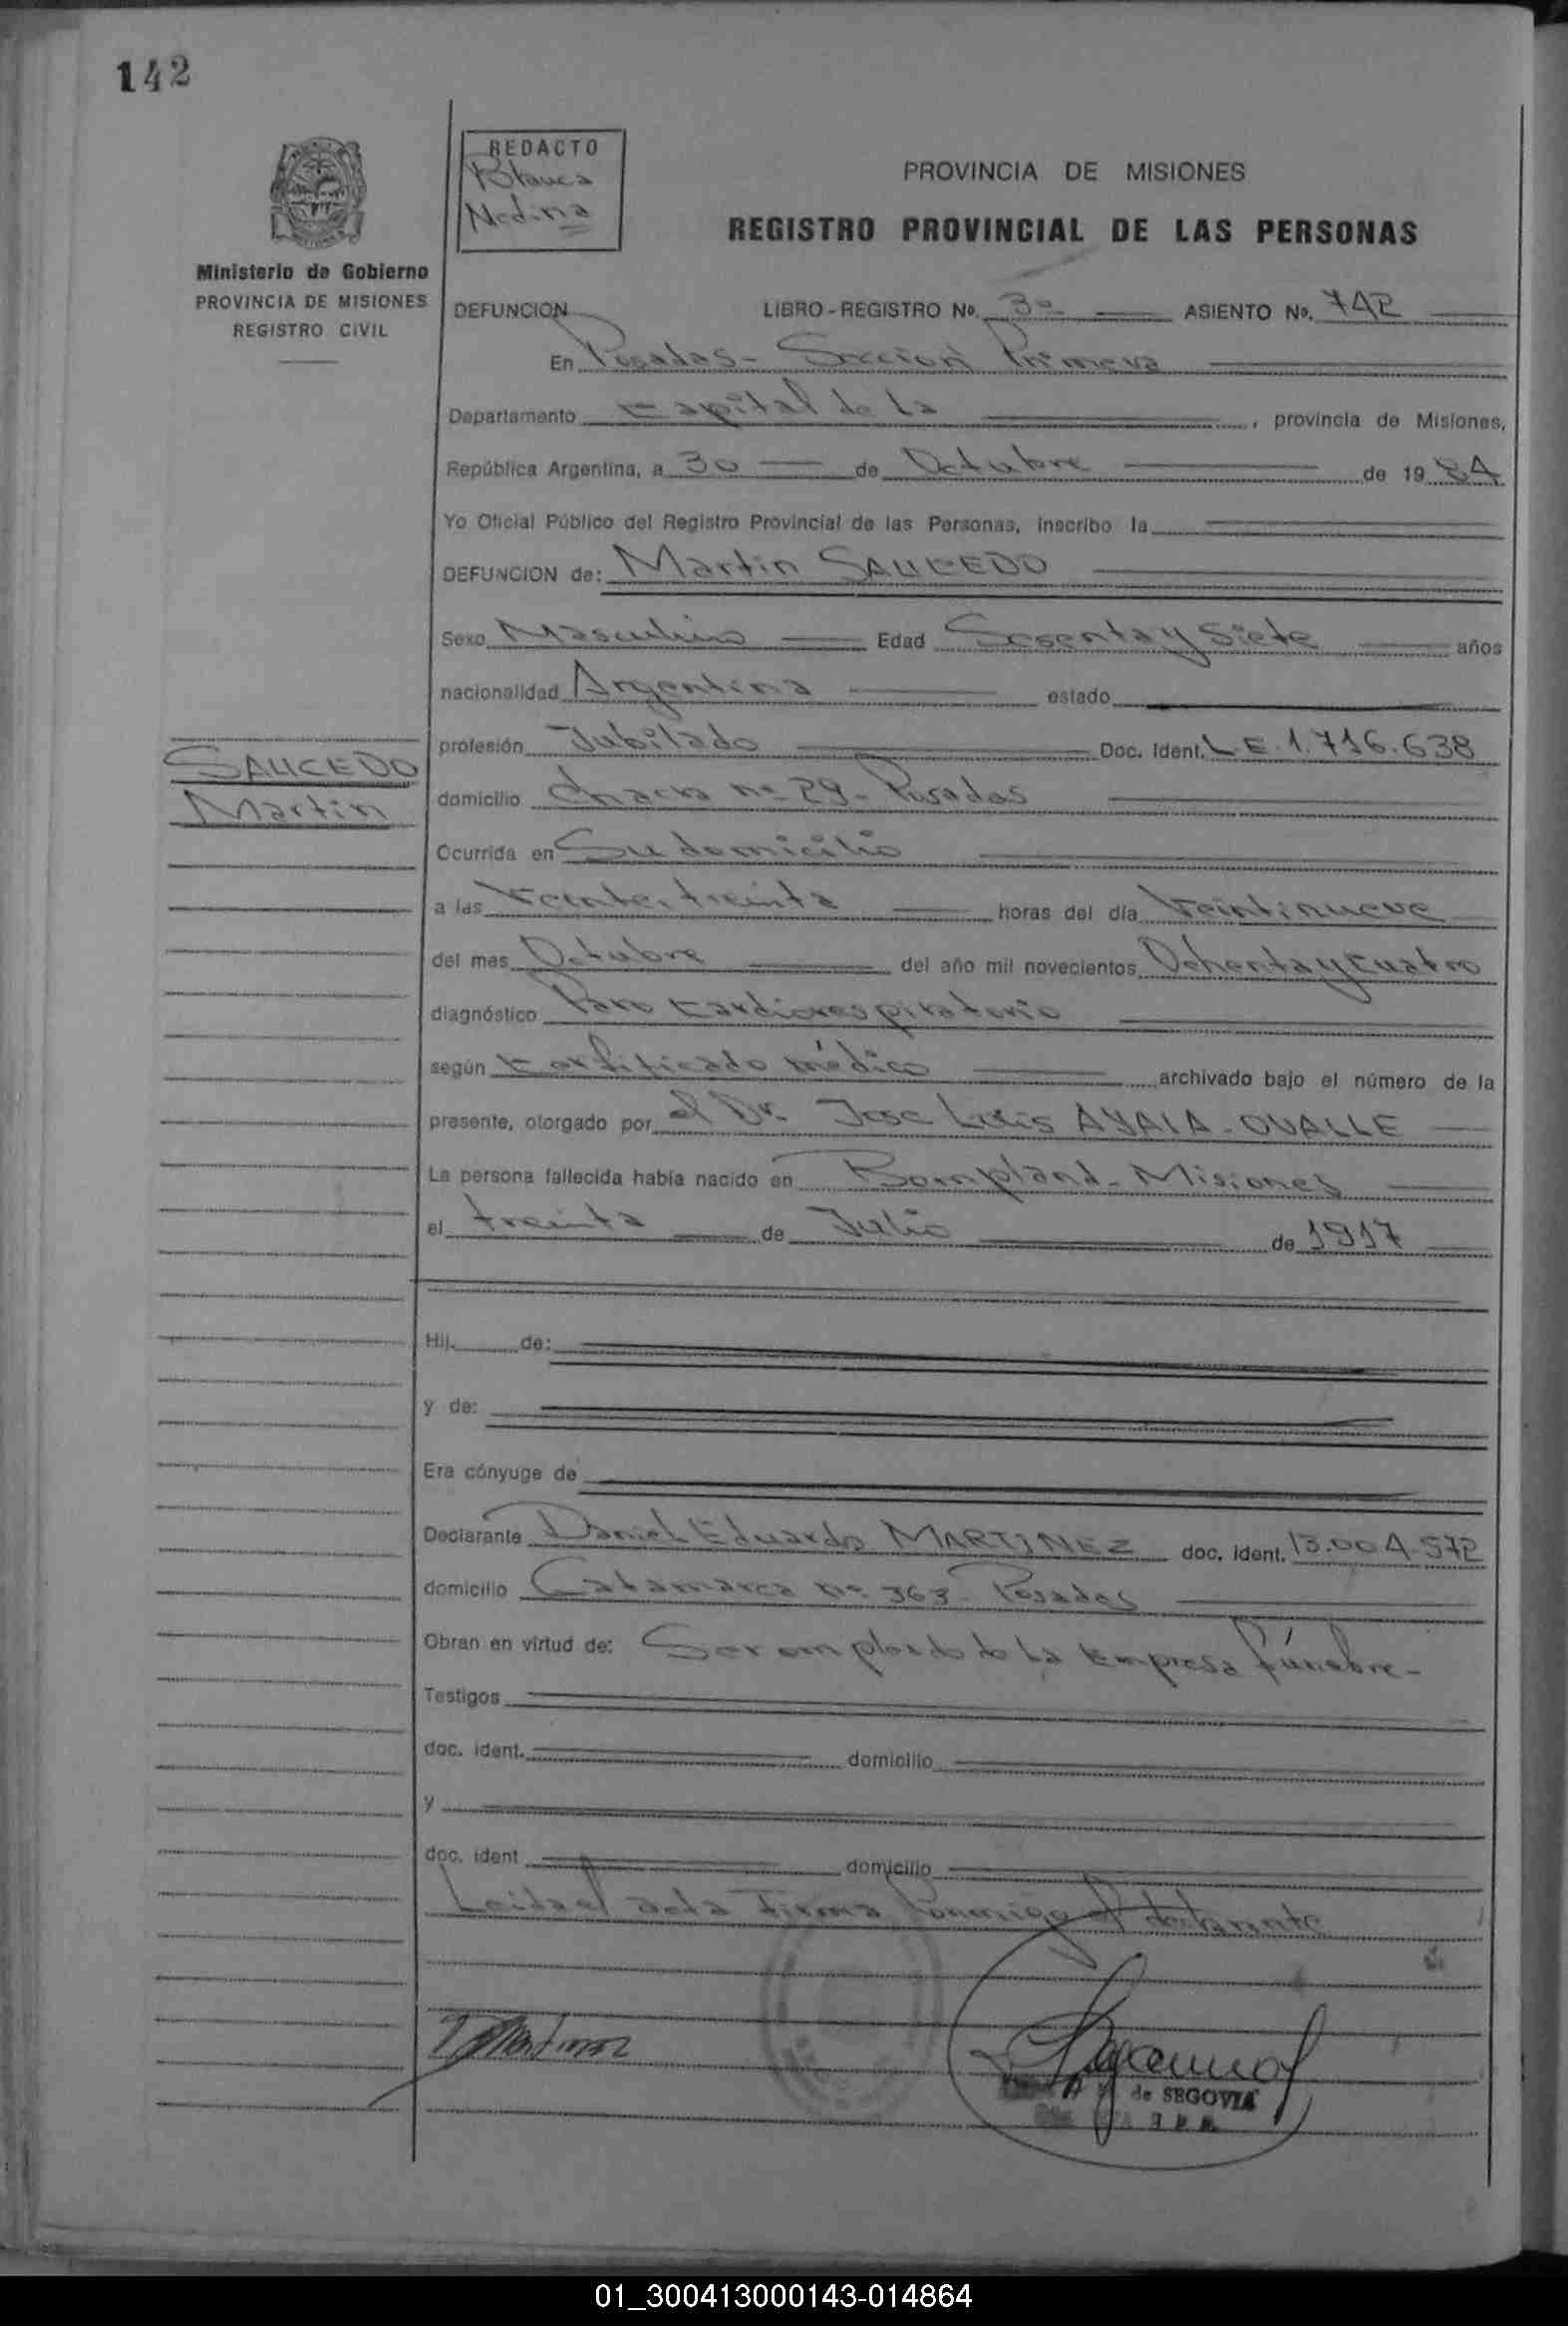 142
REDACTO
Blanca
Medina
PROVINCIA DE MISIONES
REGISTRO PROVINCIAL DE LAS PERSONAS
Ministerio de Gobierno
PROVINCIA DE MISIONES
REGISTRO CIVIL
DEFUNCION LIBRO-REGISTRO No. 3º ASIENTO No. 742
En Posadas - Sección Primera
Departamento Capital de la , provincia de Misiones,
República Argentina, a 30 de Octubre de 1984
Yo Oficial Público del Registro Provincial de las Personas, inscribo la
DEFUNCION de: Martin SAUCEDO
Sexo Masculino Edad Sesenta y Siete años
nacionalidad Argentina estado
profesión Jubilado Doc. Ident. L.E. 1.716.638
SAUCEDO
Martin
domicilio Chacra nº 29 - Posadas
Ocurrida en Su domicilio
a las Veinte, treinta horas del día Veintinueve
del mes Octubre del año mil novecientos Ochenta y Cuatro
diagnóstico Paro Cardiorespiratorio
según Certificado médico archivado bajo el número de la
presente, otorgado por el Dr. Jose Luis AYALA - OVALLE
La persona fallecida había nacido en Bompland - Misiones
el treinta de Julio de 1917
Hij. de:
y de:
Era cónyuge de
Declarante Daniel Eduardo MARTINEZ doc. ident. 13.004.572
domicilio Catamarca nº 363 - Posadas
Obran en virtud de: Ser empleado de la Empresa fúnebre -
Testigos
doc. ident. domicilio
y
doc. ident domicilio
Leida el acta Firma Conmigo el declarante
de SEGOVIA
01_300413000143-014864